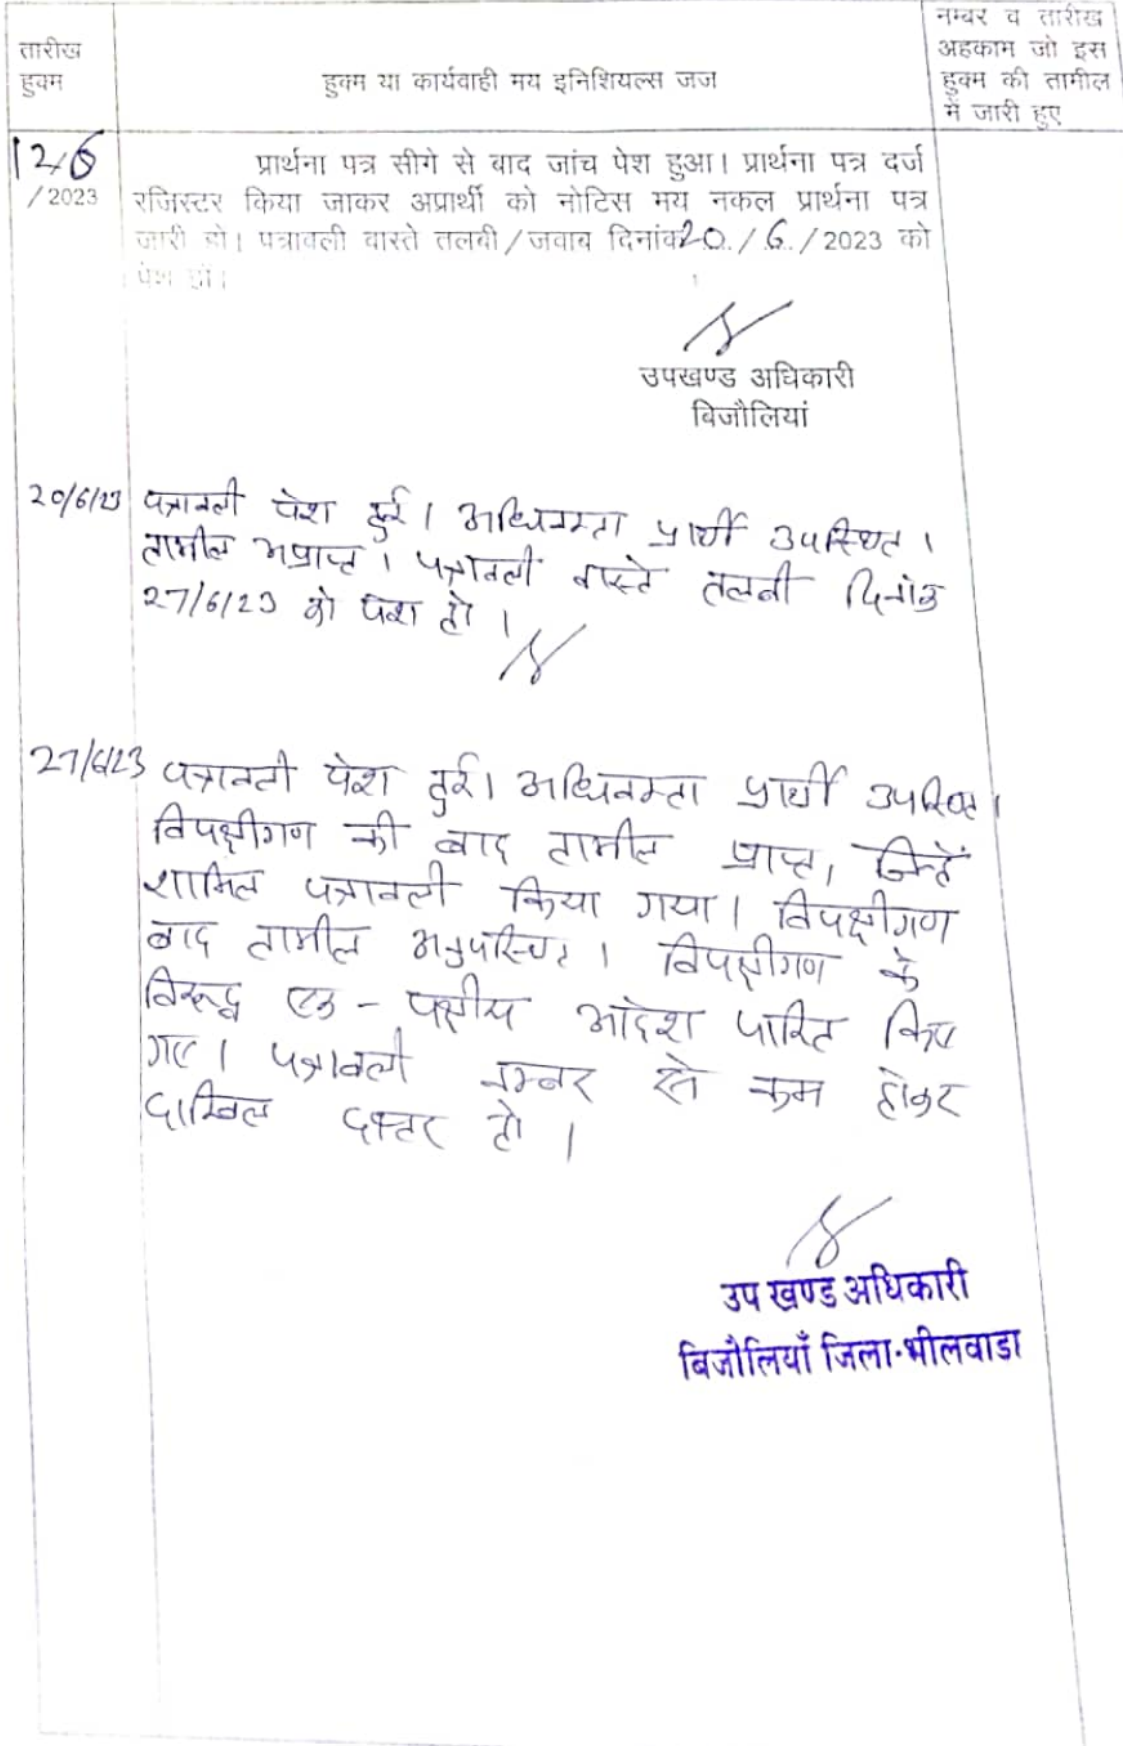 तारीख
हुक्म
हुक्म या कार्यवाही मय इनिशियल्स जज
नम्बर व तारीख
अहकाम जो इस
हुक्म की तामील
में जारी हुए
12/6
/2023
प्रार्थना पत्र सीगे से बाद जांच पेश हुआ। प्रार्थना पत्र दर्ज
रजिस्टर किया जाकर अप्रार्थी को नोटिस मय नकल प्रार्थना पत्र
जारी हो। पत्रावली वास्ते तलबी/जवाब दिनांक 20/6/2023 को
पेश हो।
उपखण्ड अधिकारी
बिजौलियां
20/6/23 पत्रावली पेश हुई। अधिवक्ता प्रार्थी उपस्थित।
तामील अप्राप्त। पत्रावली वास्ते तलबी दिनांक
27/6/23 को पेश हो।
27/6/23 पत्रावली पेश हुई। अधिवक्ता प्रार्थी उपस्थित।
विपक्षीगण की बाद तामील प्राप्त, जिन्हें
शामिल पत्रावली किया गया। विपक्षीगण
बाद तामील अनुपस्थित। विपक्षीगण के
विरूद्ध एक-पक्षीय आदेश पारित किए
गए। पत्रावली नम्बर से कम होकर
दाखिल दफ्तर हो।
उप खण्ड अधिकारी
बिजौलियाँ जिला-भीलवाडा